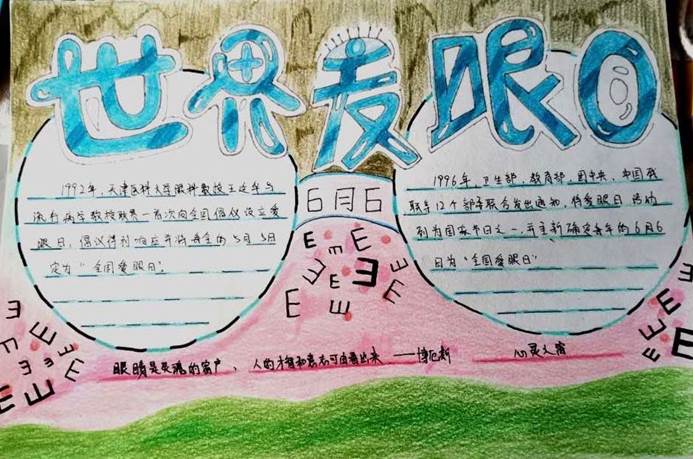 世界爱眼日
1992年，天津医科大学眼科教授王延华与
流行病学教授耿贯一首次向全国倡议设立爱
眼日，倡议得到响应并将每年的5月5日
定为“全国爱眼日”。
6月6
1996年，卫生部、教育部、团中央、中国残
联等12个部委联合发出通知，将爱眼日活动
列为国家节日之一，并重新确定每年的6月6
日为“全国爱眼日”
眼睛是灵魂的窗户，人的才智和意志可由看出来 ——博厄斯
心灵之窗